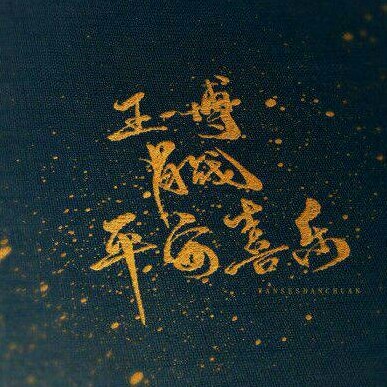 王一博
肖战
平安喜乐
WANSESHANCHUAN